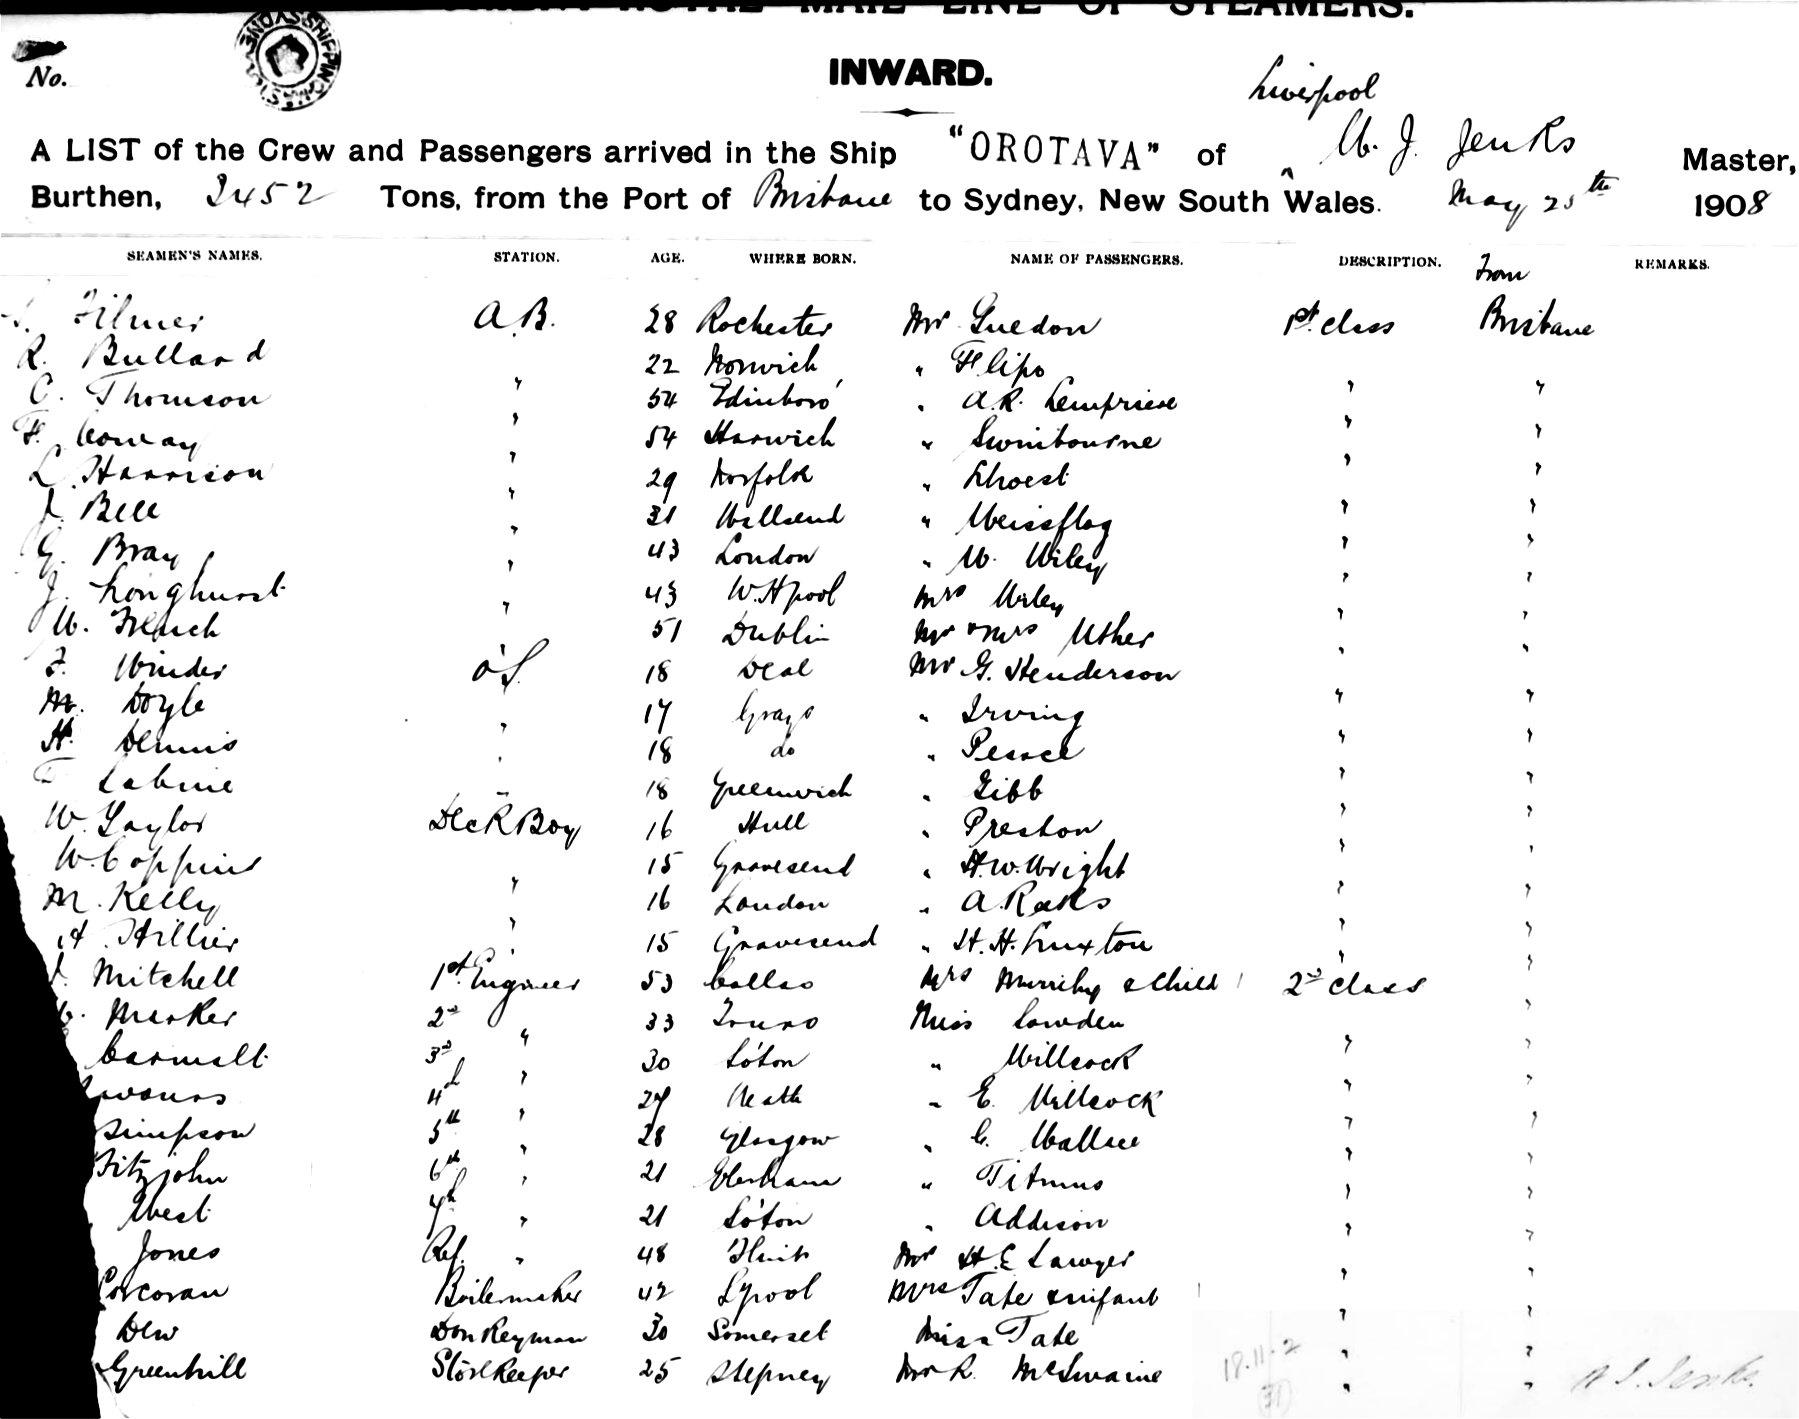 ORIENT-ROYAL MAIL LINE OF STEAMERS.
No.
INWARD.
Liverpool
A LIST of the Crew and Passengers arrived in the Ship "OROTAVA" of W. J. Jenks Master,
Burthen, 2452 Tons, from the Port of Brisbane to Sydney, New South Wales. May 25th 1908
SEAMEN'S NAMES. STATION. AGE. WHERE BORN. NAME OF PASSENGERS. DESCRIPTION. From REMARKS.
Filmer A.B. 28 Rochester Mr Guedon 1st class Brisbane
R. Bullard 22 Norwich " Flipo
C. Thomson " 54 Edinboro' " A.R. Lempriere " "
F. Conway " 54 Harwich " Swinbourne " "
L. Harrison " 29 Norfolk " Lhoest " "
J. Bell " 31 Wallsend " Weissflog " "
G. Bray " 43 London " W. Wiley " "
J. Longhurst " 43 W. Hpool Mrs Wiley " "
W. French " 51 Dublin Mr & Mrs Usher " "
F. Winder O.S. 18 Deal Mr G. Henderson " "
M. Doyle 17 Grays " Irving " "
H. Dennis " 18 do " Pearce " "
F Sabine " 18 Greenwich " Gibb " "
W. Taylor Deck Boy 16 Hull " Preston " "
W. Coppins 15 Gravesend " H.W. Wright " "
M. Kelly " 16 London " A. Reeks " "
A. Hillier " 15 Gravesend " H. H. Luxton " "
J. Mitchell 1st Engineer 53 Callao Mrs & Child 2nd class "
Marker 2nd " 33 Truro Miss Lowden "
Carmalt 3rd " 30 So'ton " Willcock " "
4th " 27 Neath " E. Willcock " "
Simpson 5th " 28 Glasgow " C. Wallace " "
Fitzjohn 6th " 21 " Titmus " "
West 7th " 21 So'ton " Addison " "
Jones Ref. " 48 Flint Mr H.E Sawyer " "
Corcoran Boilermaker 42 L'pool Mrs Tate & infant " "
Dew Donkeyman 30 Somerset Miss Tate " "
Greenhill Storekeeper 25 Stepney Mr R. McSwaine " "
18.11.2
(31)